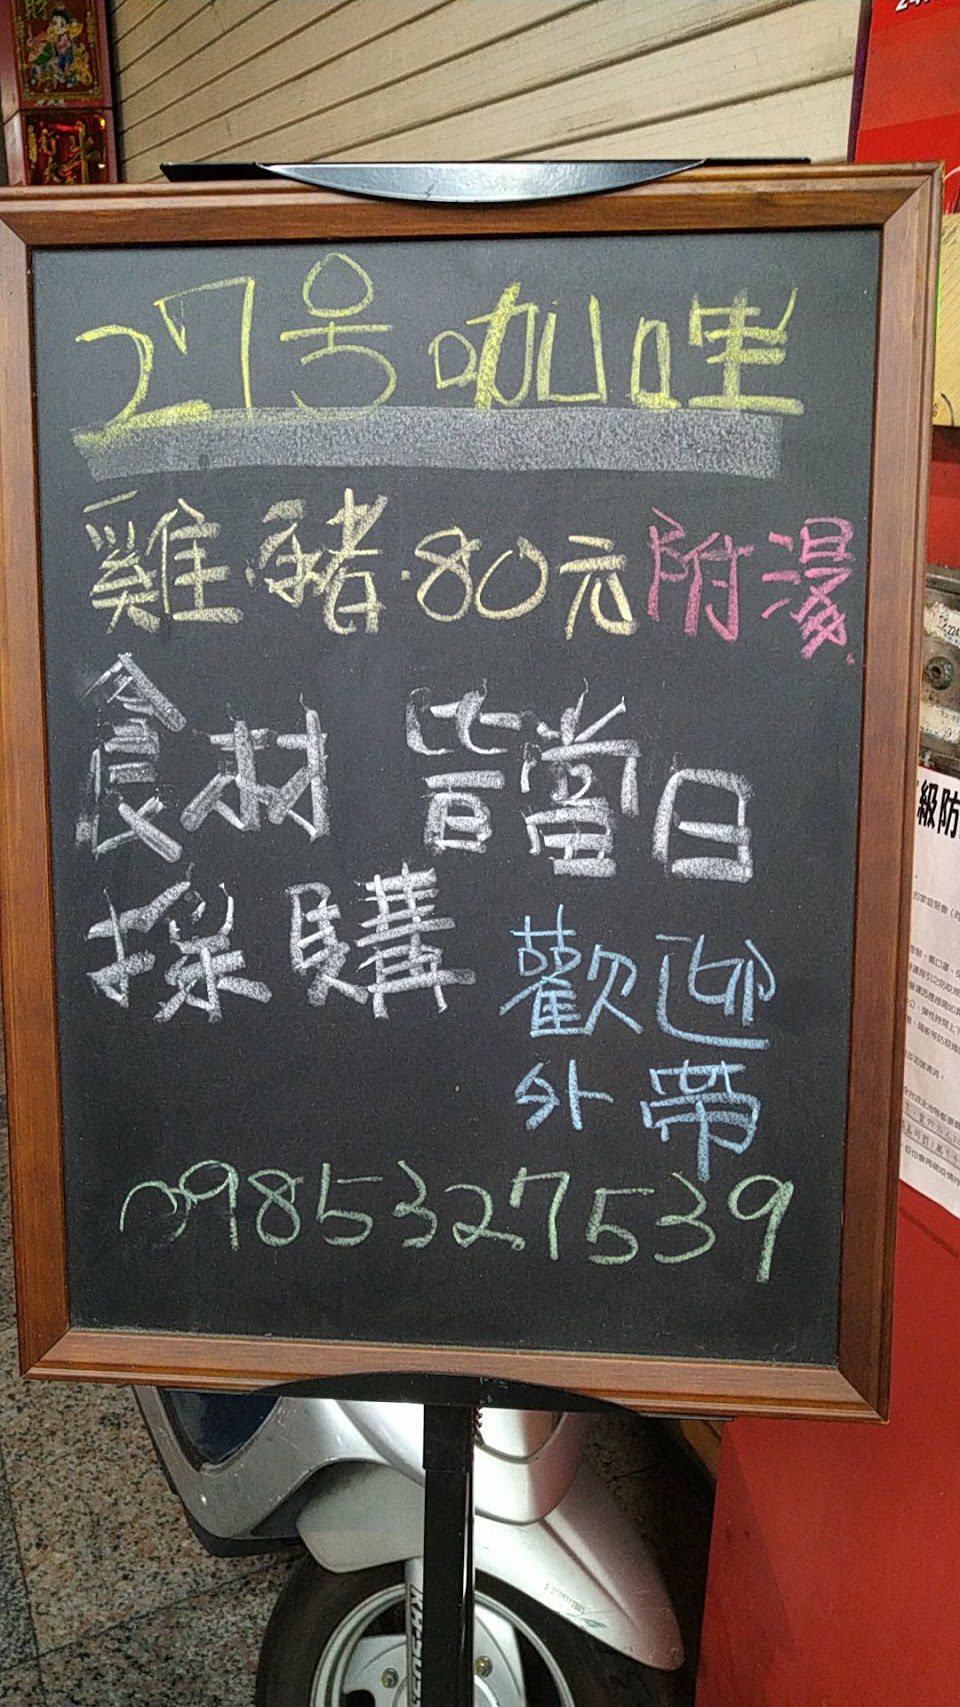 27号咖哩
雞.豬.80元附湯
食材 皆當日
採購 歡迎
外帶
0985327539
級防
KYMCO